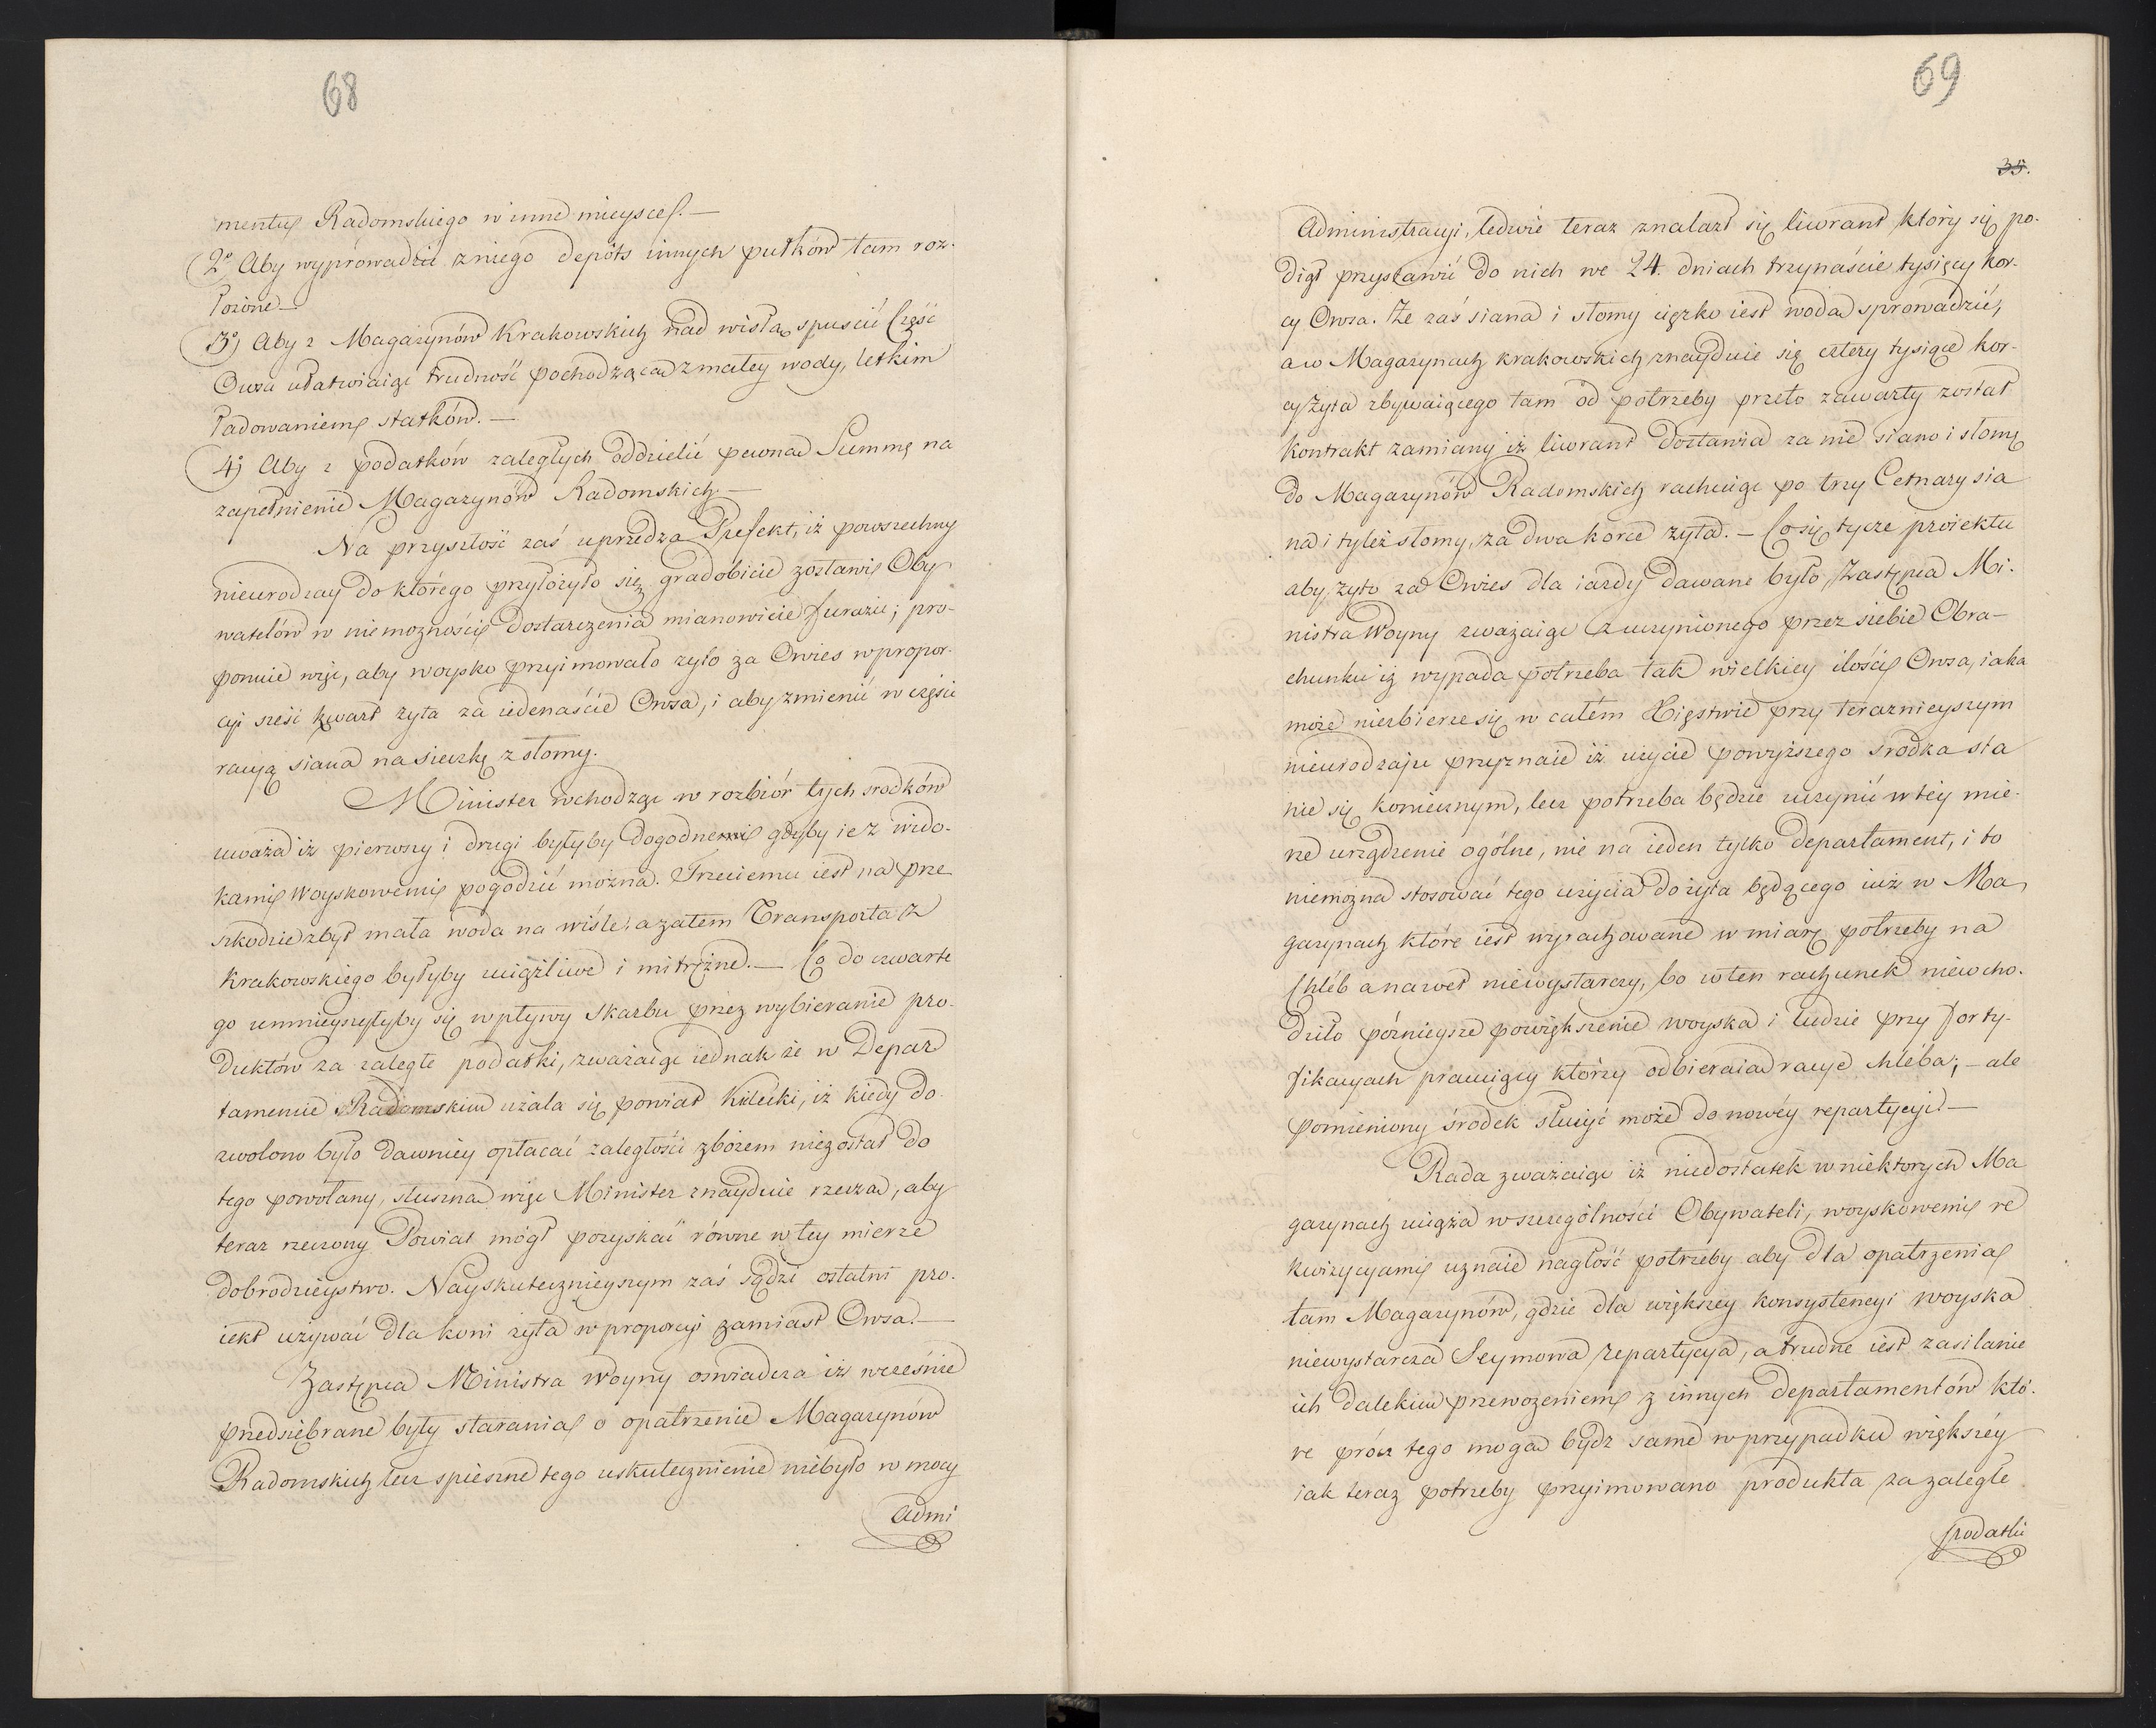 68
mentu Radomskiego w inne mieysce. —
2o Aby wyprowadzić z niego depôts innych pułków tam roz-
łożone —
3o) Aby z Magazynów Krakowskich nad wisłą spuścić Część
Owsa ułatwiaiąc trudność pochodzącą z małey wody, letkim
ładowaniem statków. —
4) Aby z podatków zaległych oddzielić pewną Summę na
zapełnienie Magazynów Radomskich —
Na przyszłość zaś uprzedza Prefekt, iż powszechny
nieurodzay do którego przyłożyło się gradobicie zostawi Oby
watelów w niemożności dostarczenia mianowicie furażu; pro-
ponuie więc, aby woysko przyimowało żyto za Owies w propor-
cyi sześć kwart żyta za iedenaście Owsa, i aby zmienić w części
racyą siana na sieczkę z słomy.
Minister wchodząc w rozbiór tych srodków
uważa iż pierwszy i drugi byłyby dogodnemi gdyby ie z wido-
kami Woyskowemi pogodzić można. Trzeciemu iest na prze
szkodzie zbyt mała woda na wiśle, a zatem Transporta z
Krakowskiego byłyby uciążliwe i mitrężne. — Co do czwarte
go umnieyszyłyby się wpływy Skarbu przez wybieranie pro-
duktów za zaległe podatki, zważaiąc iednak że w Depar
tamencie Radomskim użala się powiat Kielecki, iż kiedy do-
zwolono było dawniey opłacać zaległości zbożem niezostał do
tego powołany, słuszną więc Minister znayduie rzeczą, aby
teraz rzeczony Powiat mógł pozyskać równe w tey mierze
dobrodzieystwo. Nayskutecznieyszym zaś sądzi ostatni pro-
iekt używać dla koni żyta w proporcyi zamiast Owsa. —
Zastępca Ministra Woyny oświadcza iż wcześnie
przedsiębrane były starania o opatrzenie Magazynów
Radomskich lecz spieszne tego uskutecznienie niebyło w mocy
Admi
69
35.
Administracyi, ledwie teraz znalazł się liwerant który się po-
diął przystawić do nich we 24. dniach trzynaście tysięcy kor-
cy Owsa. Że zaś siana i słomy ciężko iest wodą sprowadzić,
a w Magazynach krakowskich znayduie się cztery tysiące kor-
cy żyta zbywaiącego tam od potrzeby przeto zawarty został
kontrakt zamiany iż liwerant dostawia za nie siano i słomę
do Magazynów Radomskich rachuiąc po trzy Cetnary sia
na i tyleż słomy, za dwa korce żyta. — Co się tycze proiektu
aby żyto za Owies dla iazdy dawane było, Zastępca Mi-
nistra Woyny zważaiąc z uczynionego przez siebie Obra-
chunku iż wypada potrzeba tak wielkiey ilości Owsa, iaka
może niezbierze się w całém Xięstwie przy teraznieyszym
nieurodzaju przyznaie iż użycie powyższego srodka sta
nie się koniecznym, lecz potrzeba będzie uczynić w tey mie-
rze urządzenie ogólne, nie na ieden tylko departament, i to
niemożna stosować tego użycia do żyta będącego iuż w Ma
gazynach które iest wyrachowane w miarę potrzeby na
Chléb a nawet niewystarczy, bo w ten rachunek niewcho-
dziło późnieysze powiększenie woyska i ludzie przy forty-
fikacyach pracuiący którzy odbieraią racye chléba; — ale
pomieniony środek służyć może do nowéy repartycyi. —
Rada zważaiąc iż niedostatek w niektorych Ma
gazynach uciąża w szczególności Obywateli, woyskowemi re
kwizycyami uznaie nagłość potrzeby aby dla opatrzenia
tam Magazynów, gdzie dla większey konsystencyi woyska
niewystarcza Seymowa repartycya, a trudne iest zasilanie
ich dalekim przewożeniem z innych departamentów któ-
re prócz tego mogą bydź same w przypadku większéy
iak teraz potrzeby przyimowano produkta za zaległe
podatki